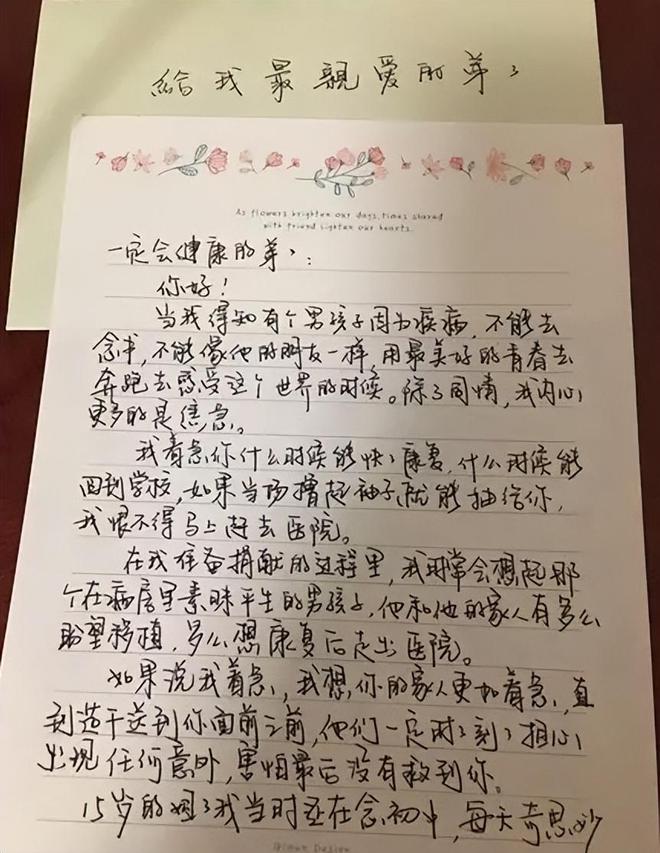 給我最親爱的弟弟
As flowers brighten our days, times shared
with friend lighten our hearts.
一定会健康的弟弟:
你好!
当我得知有个男孩子因为疾病,不能去
念书,不能像他的朋友一样,用最美好的青春去
奔跑去感受这个世界的时候。除了同情,我内心
更多的是焦急。
我着急你什么时候能快快康复,什么时候能
回到学校,如果当场撸起袖子就能抽给你,
我恨不得马上赶去医院。
在我准备捐献的过程里,我时常会想起那
个在病房里素昧平生的男孩子,他和他的家人有多么
盼望移植,多么想康复后走出医院。
如果说我着急,我想,你的家人更加着急,直
到造干送到你面前之前,他们一定时时刻刻担心
出现任何意外,害怕最后没有救到你。
15岁的姐姐我当时还在念初中,每天奇思妙